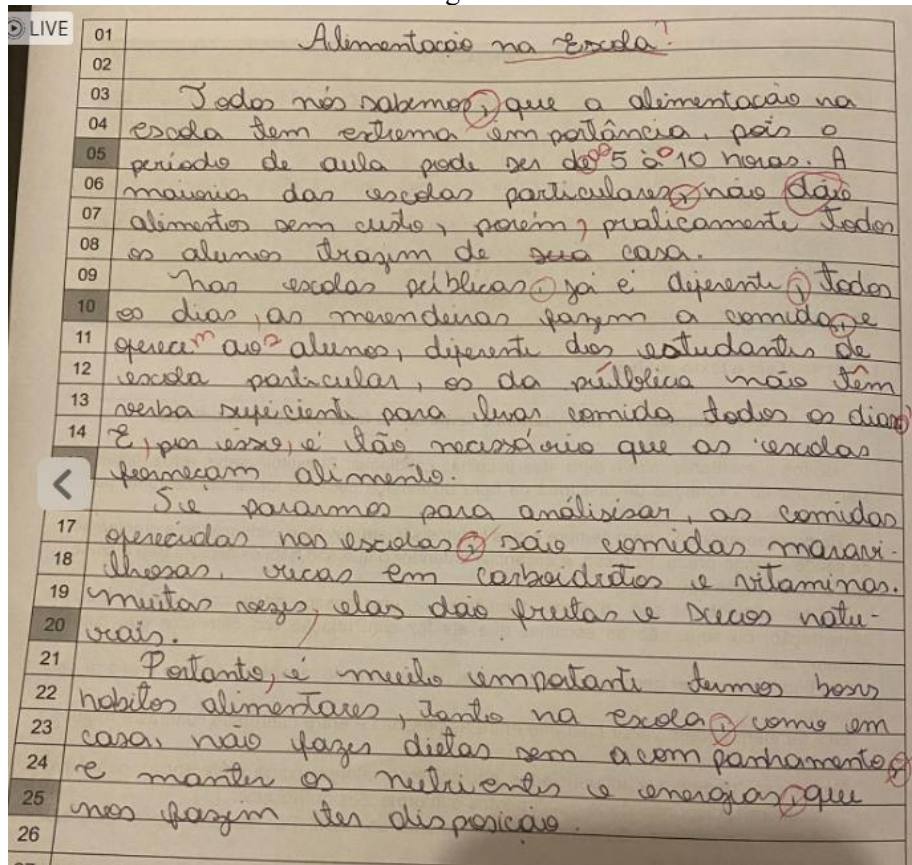 LIVE
01 Alimentação na Escola!
02
03 Todos nós sabemos, que a alimentação na
04 escola tem extrema importância, pois o
05 período de aula pode ser de 5 à 10 horas. A
06 maioria das escolas particulares, não dão
07 alimentos sem custo, porém, praticamente todos
08 os alunos trazem de sua casa.
09 Nas escolas públicas, já é diferente, todos
10 os dias, as merendeiras fazem a comida, e
11 oferecem aos alunos, diferente dos estudantes de
12 escola particular, os da pública não têm
13 verba suficiente para levar comida todos os dias,
14 E, por isso, é tão necessário que as escolas
forneçam alimento.
Se pararmos para análisisar, as comidas
17 oferecidas nas escolas, são comidas maravi-
18 lhosas, ricas em carboidratos e vitaminas.
19 muitas vezes, elas dão frutas e sucos natu-
20 rais.
21 Portanto, é muito importante termos bons
22 habitos alimentares, tanto na escola, como em
23 casa, não fazer dietas sem acompanhamento,
24 e manter os nutrientes e energias, que
25 nos fazem ter disposição.
26